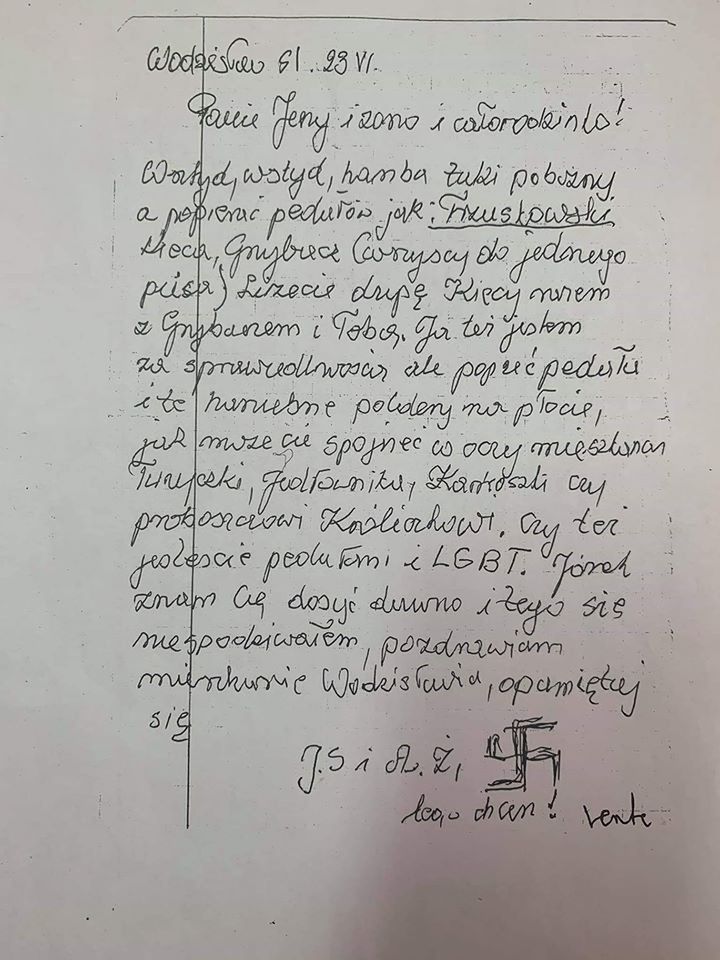 Wodzisław Śl. 23 VI.
Panie Jerzy i żono i cało rodzinko!
Wstyd, wstyd, hańba taki pobożny
a popierać pedałów jak: Trzuskowski
Kieca, Grzybiec (wszyscy do jednego
pisa) Liżecie dupę Kiecy razem
z Grzybarzem i Tobą. Ja też jestem
za sprawiedliwością ale poprzeć pedała
i te haniebne poldery na płocie,
jak możecie spojrzeć w oczy mieszkanan
Turyczki, Jedłownika, Karkoszki czy
proboszczowi. czy też
jesteście pedałami i LGBT. Józek
znam Cię dosyć dawno i tego się
niespodziwałem, pozdrawiam
mieszkanie Wodzisławia, opamiętaj
się
J.S i A.Ż,
tego chcesz!